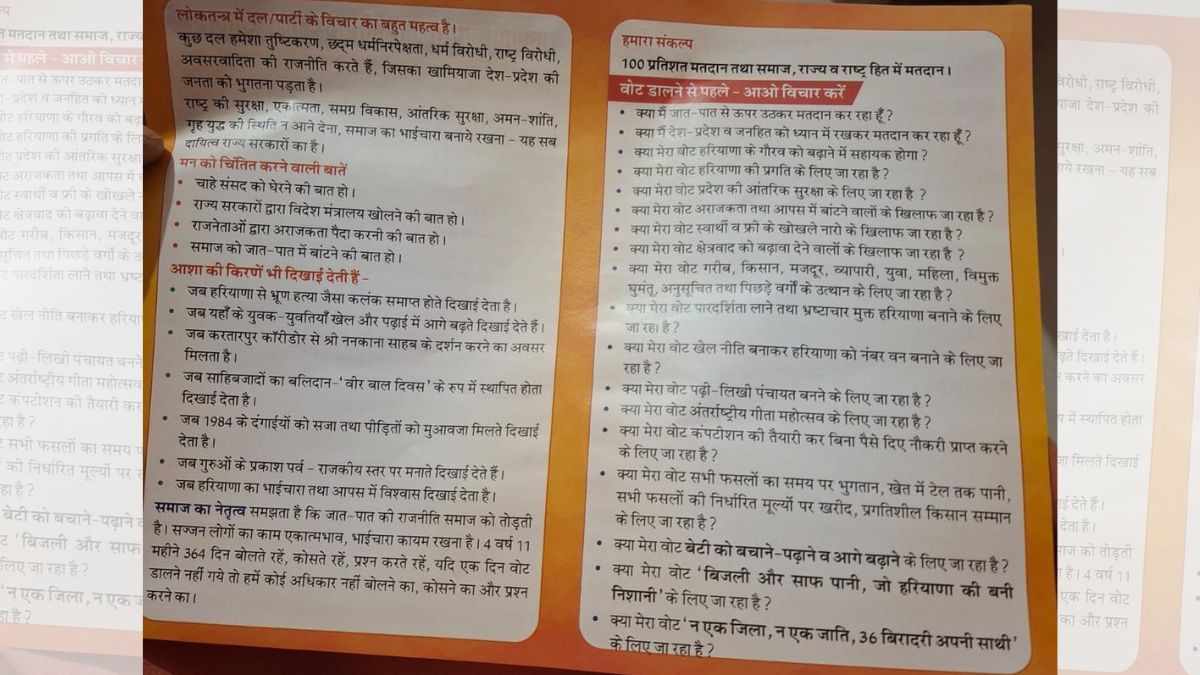 लोकतन्त्र में दल/पार्टी के विचार का बहुत महत्व है।
कुछ दल हमेशा तुष्टिकरण, छद्म धर्मनिरपेक्षता, धर्म विरोधी, राष्ट्र विरोधी,
अवसरवादिता की राजनीति करते हैं, जिसका खामियाजा देश-प्रदेश की
जनता को भुगतना पड़ता है।
राष्ट्र की सुरक्षा, एकात्मता, समग्र विकास, आंतरिक सुरक्षा, अमन-शांति,
गृह युद्ध की स्थिति न आने देना, समाज का भाईचारा बनाये रखना - यह सब
दायित्व राज्य सरकारों का है।
मन को चिंतित करने वाली बातें
• चाहे संसद को घेरने की बात हो।
• राज्य सरकारों द्वारा विदेश मंत्रालय खोलने की बात हो।
• राजनेताओं द्वारा अराजकता पैदा करनी की बात हो।
• समाज को जात-पात में बांटने की बात हो।
आशा की किरणें भी दिखाई देती हैं -
• जब हरियाणा से भ्रूण हत्या जैसा कलंक समाप्त होते दिखाई देता है।
• जब यहाँ के युवक-युवतियाँ खेल और पढ़ाई में आगे बढ़ते दिखाई देते हैं।
• जब करतारपुर कॉरीडोर से श्री ननकाना साहब के दर्शन करने का अवसर
मिलता है।
• जब साहिबजादों का बलिदान-'वीर बाल दिवस' के रुप में स्थापित होता
दिखाई देता है।
• जब 1984 के दंगाईयों को सजा तथा पीड़ितों को मुआवजा मिलते दिखाई
देता है।
• जब गुरुओं के प्रकाश पर्व - राजकीय स्तर पर मनाते दिखाई देते हैं।
• जब हरियाणा का भाईचारा तथा आपस में विश्वास दिखाई देता है।
समाज का नेतृत्व समझता है कि जात-पात की राजनीति समाज को तोड़ती
है। सज्जन लोगों का काम एकात्मभाव, भाईचारा कायम रखना है। 4 वर्ष 11
महीने 364 दिन बोलते रहें, कोसते रहें, प्रश्न करते रहें, यदि एक दिन वोट
डालने नहीं गये तो हमें कोई अधिकार नहीं बोलने का, कोसने का और प्रश्न
करने का।
हमारा संकल्प
100 प्रतिशत मतदान तथा समाज, राज्य व राष्ट्र हित में मतदान।
वोट डालने से पहले - आओ विचार करें
• क्या मैं जात-पात से ऊपर उठकर मतदान कर रहा हूँ?
• क्या मैं देश-प्रदेश व जनहित को ध्यान में रखकर मतदान कर रहा हूँ?
• क्या मेरा वोट हरियाणा के गौरव को बढ़ाने में सहायक होगा?
• क्या मेरा वोट हरियाणा की प्रगति के लिए जा रहा है?
• क्या मेरा वोट प्रदेश की आंतरिक सुरक्षा के लिए जा रहा है ?
• क्या मेरा वोट अराजकता तथा आपस में बांटने वालों के खिलाफ जा रहा है?
• क्या मेरा वोट स्वार्थी व फ्री के खोखले नारो के खिलाफ जा रहा है?
• क्या मेरा वोट क्षेत्रवाद को बढ़ावा देने वालों के खिलाफ जा रहा है ?
• क्या मेरा वोट गरीब, किसान, मजदूर, व्यापारी, युवा, महिला, विमुक्त
घुमंतू, अनुसूचित तथा पिछड़े वर्गों के उत्थान के लिए जा रहा है?
• क्या मेरा वोट पारदर्शिता लाने तथा भ्रष्टाचार मुक्त हरियाणा बनाने के लिए
जा रहा है?
• क्या मेरा वोट खेल नीति बनाकर हरियाणा को नंबर वन बनाने के लिए जा
रहा है?
• क्या मेरा वोट पढ़ी-लिखी पंचायत बनने के लिए जा रहा है?
• क्या मेरा वोट अंतर्राष्ट्रीय गीता महोत्सव के लिए जा रहा है?
• क्या मेरा वोट कंपटीशन की तैयारी कर बिना पैसे दिए नौकरी प्राप्त करने
के लिए जा रहा है?
• क्या मेरा वोट सभी फसलों का समय पर भुगतान, खेत में टेल तक पानी,
सभी फसलों की निर्धारित मूल्यों पर खरीद, प्रगतिशील किसान सम्मान
के लिए जा रहा है?
• क्या मेरा वोट बेटी को बचाने-पढ़ाने व आगे बढ़ाने के लिए जा रहा है?
• क्या मेरा वोट 'बिजली और साफ पानी, जो हरियाणा की बनी
निशानी' के लिए जा रहा है?
• क्या मेरा वोट 'न एक जिला, न एक जाति, 36 बिरादरी अपनी साथी'
के लिए जा रहा है?